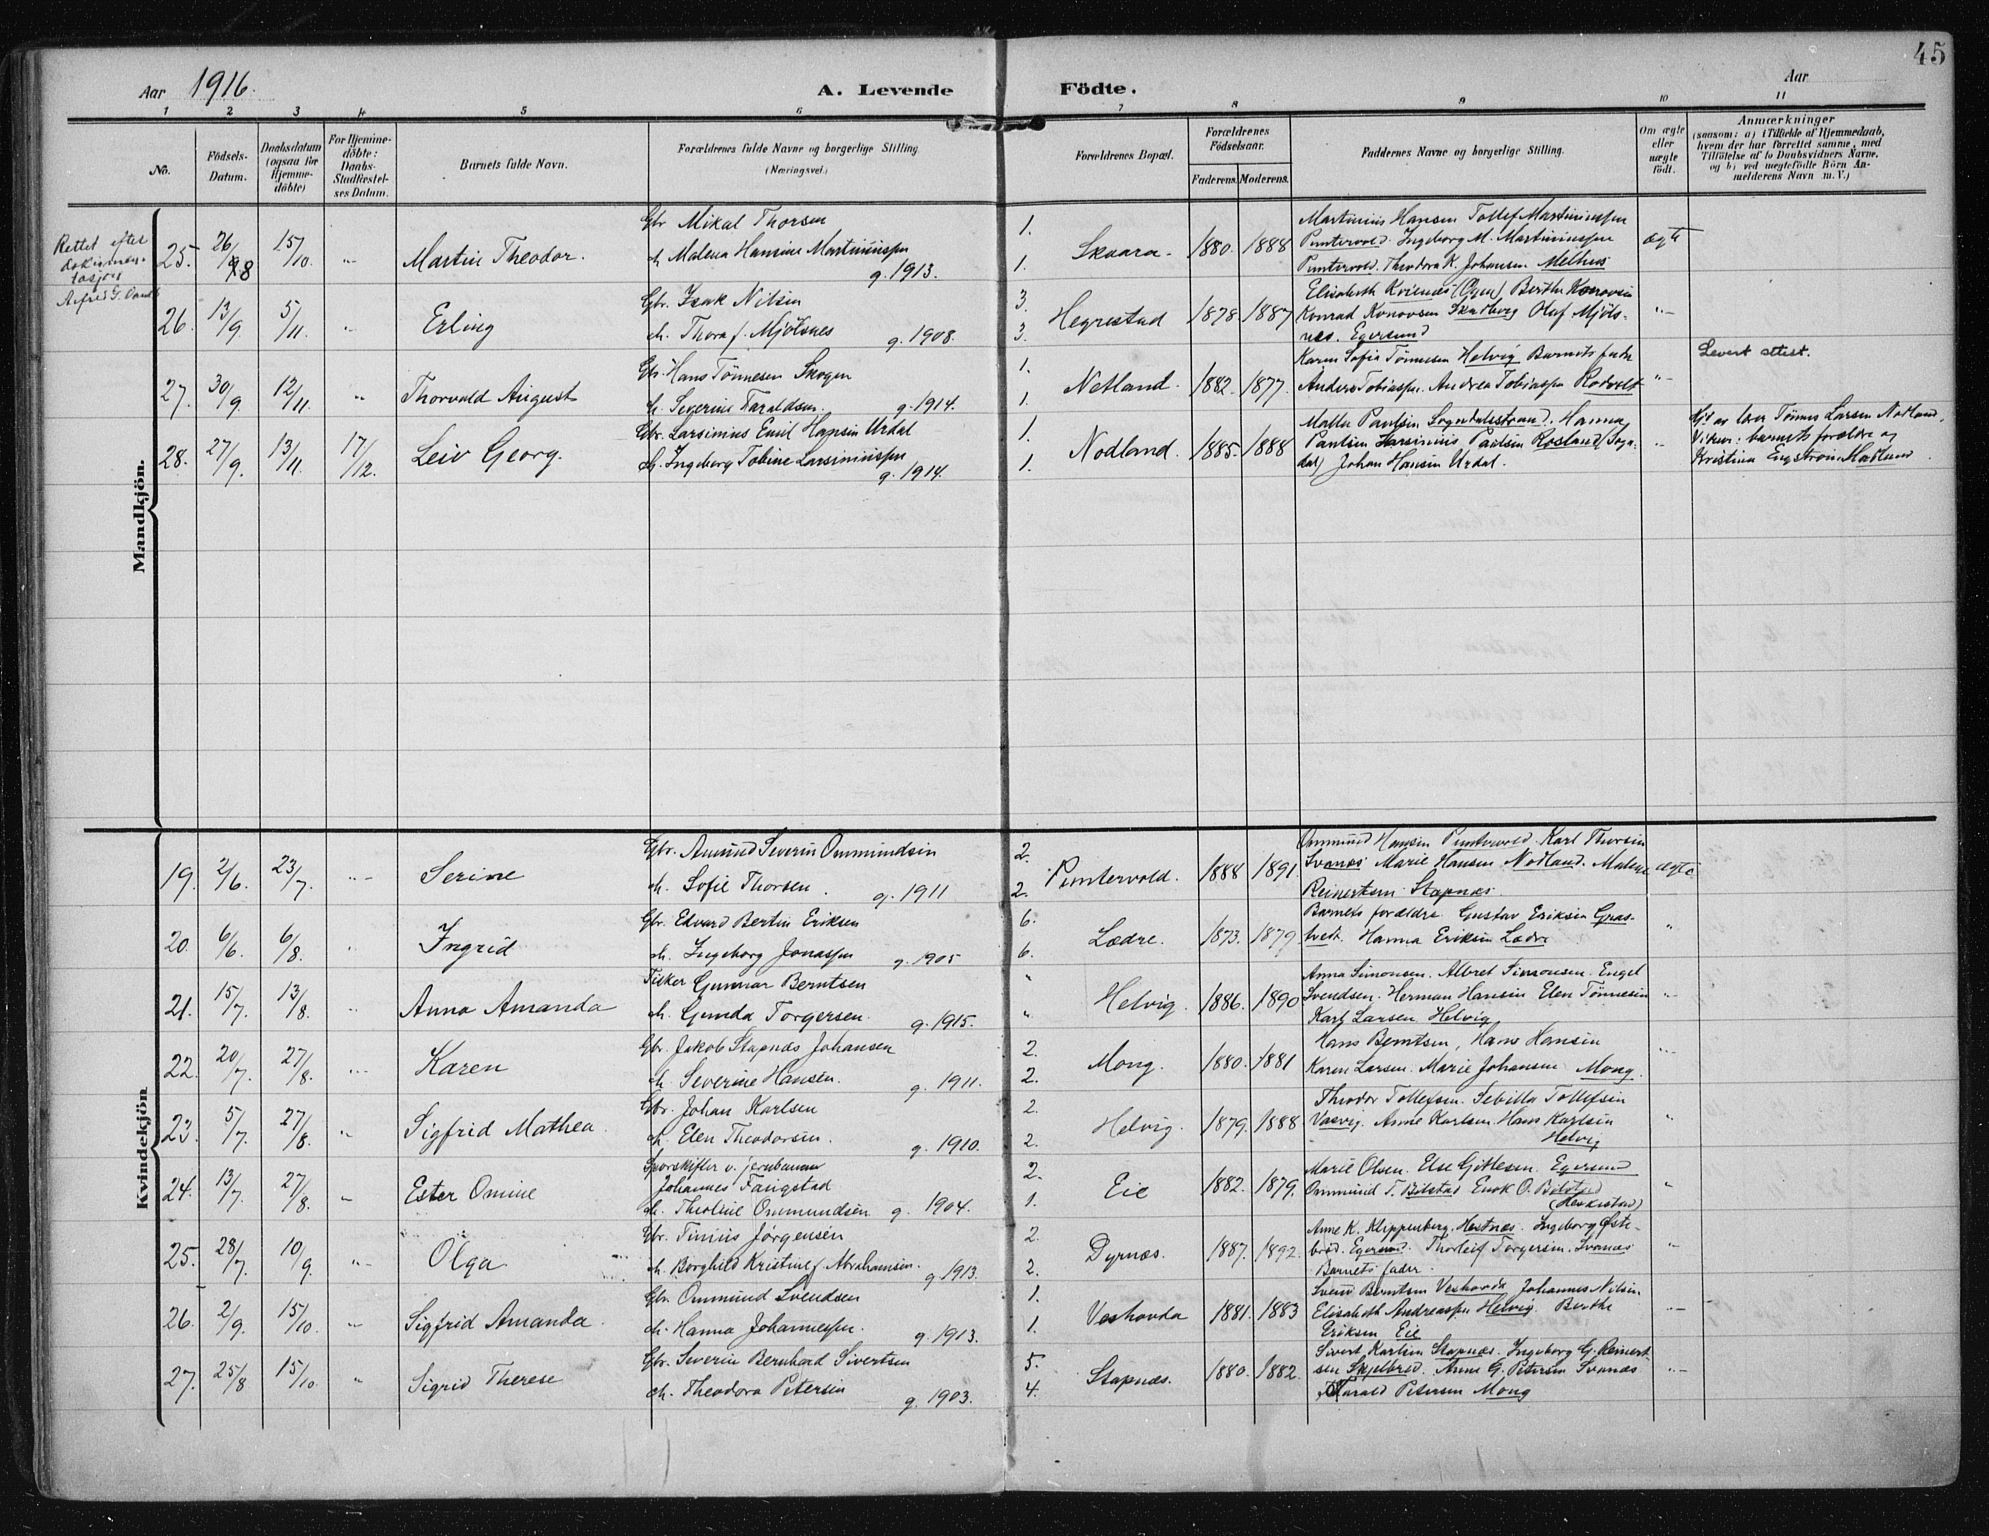 45
Aar 1916. A. Levende Födte. Aar
1 2 3 4 5 6 7 8 9 10 11
No.
Födsels-Datum.
Daabsdatum (ogsaa for Hjemme-döbte)
For Hjemme-döbte: Daabs-Stadfæstel-ses Datum.
Barnets fulde Navn.
Forældrenes fulde Navne og borgerlige Stilling.
(Næringsvei.)
Forældrenes Bopæl.
Forældrenes Födselsaar.
Faderens. Moderens.
Faddernes Navne og borgerlige Stilling.
Om ægte eller uægte födt.
Anmærkninger
(saasom: a) i Tilfælde af Hjemmedaab,
hvem der har forrettet samme, med
Tilföielse af to Daabsvidners Navne,
og b) ved uægtefödte Börn An-
melderens Navn m. V.)
Mandkjön.
Rettet efter
dokumen-
tasjon
25. 26/8 15/10. " Martin Theodor.
Gbr Mikal Thorsen
h. Malena Hansine Martiniuspn
g. 1913.
1. 1. Skaara 1880. 1888
Martinius Hansen Tollef Martiniuspn
Puntervold. Ingeborg M. Martiniuspn
Puntervold. Theodora K. Johansen Melhus
ægte
26. 13/9 5/11. " Erling
Gbr. Isak Nilsen
h. Thora f. Mjölsnes g. 1908.
3. 3. Hegrestad 1878 1887
Elisabeth Kvienes (Ogn) Berthe Konovsen
Konrad Konovsen Skadberg Olaf Mjöls-
nes. Egersund
"
27. 30/9 12/11. " Thorvald August
Gbr. Hans Tönnesen Skogen
h. Severine Haraldsen. g. 1914.
1. 1. Netland. 1882. 1877.
Karen Sofie Tönnesen Helvig Barnets fader
Anders Tobiaspn. Andrea Tobiaspn Rodvelt
"
Levert attest.
28. 27/9. 13/11. 17/12. Leiv Georg.
Gbr. Larsinius Emil Hansen Urdal
h. Ingeborg Tobine Larsiniuspn
g. 1914.
1. 1. Nodland. 1885. 1888
Malla Paulsen Sogndalsstrand. Hanna
Paulsen Larsinius Paulsen Rosland (Sogn-
dal) Johan Hansen Urdal.
"
Hjd. av lærer Tönnes Larsen Nodland.
Vidner: barnets forældre og
Kristina Engström Madland
Kvindekjön
19. 2/6. 23/7. " Serine
Gbr. Amund Severin Ommundsen
h. Sofie Thorsen. g. 1911
2. 2. Puntervold. 1888 1891
Ommund Hansen Puntervold. Karl Thorsen
Svanes Marie Hansen Nodland. Malene
Reinertsen Stapnes.
ægte
20. 6/6. 6/8. " Ingrid
Gbr. Edvard Bertin Eriksen
h. Ingeborg Jonaspn g. 1905
6. 6. Lædre. 1873. 1879
Barnets forældre. Gustav Eriksen Gras-
tveit. Hanna Eriksen Lædre
"
21. 15/7. 13/8. " Anna Amanda
Fisker Gunnar Berntsen
h. Gunda Torgersen. g. 1915.
" " Helvig. 1886. 1890
Anna Simonsen. Albret Simonsen. Engel
Svendsen. Herman Hansen Elen Tönnesen
Karl Larsen Helvig
"
22. 20/7. 27/8. " Karen
Gbr. Jakob Stapnes Johansen
h. Severine Hansen. g. 1911.
2. 2. Mong. 1880. 1881
Hans Berntsen, Hans Hansen
Karen Larsen. Marie Johansen Mong.
"
23. 5/7. 27/8. " Sigfrid Mathea.
Gbr. Johan Karlsen
h. Elen Theodorsen. g. 1910.
2. 2. Helvig. 1879. 1888
Theodor Tollefsen. Sebilla Tollefsen
Vasvig. Anne Karlsen. Hans Karlsen
Helvig
"
24. 13/7. 27/8. " Ester Omine
Sporskifter v. jernbanen
Johannes Faugstad
h. Tholine Ommundsen g. 1904.
2. 1. Eie 1882. 1879.
Marie Olsen. Else Gitlesen. Egersund
Ommund T. Bilstad Enok O. Bilstad
(Heskestad)
"
25. 28/7. 10/9. " Olga
Gbr. Tinius Jörgensen
h. Borghild Kristine f. Abrahamsen.
g. 1913.
2. 2. Dyrnæs. 1887. 1892.
Anne K. Klippenberg. Hestnæs. Ingeborg Øste-
bröd. Egersund. Thorleif Torgersen. Svanæs
Barnets fader.
"
26. 2/9. 15/10. " Sigfrid Amanda.
Gbr. Ommund Svendsen
h. Hanna Johannespn. g. 1913.
1. 1. Veshovda 1881. 1883
Svend Berntsen Veshovda Johannes Nilsen
Elisabeth Andreaspn Helvig. Berthe
Eriksen Eie
"
27. 25/8 15/10. " Sigrid Therese
Gbr. Severin Bernhard Sivertsen
h. Theodora Petersen g. 1903.
5. 4. Stapnæs. 1880. 1882.
Sivert Karlsen Stapnæs. Ingeborg G. Reinert-
sen Skjelbred. Anne G. Petersen Svanæs
Harald Petersen Mong
"